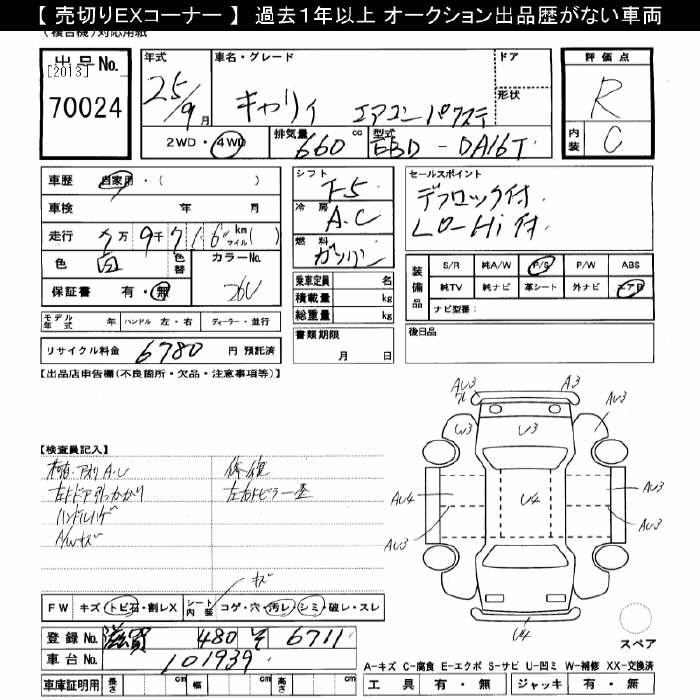 【 売切りEXコーナー 】 過去1年以上 オークション出品歴がない車両
(複合機)対応用紙
出品No.
[2013]
70024
年式
25/9月
車名・グレード
キャリイ エアコン パワステ
ドア
形状
評価点
R
内装
C
2WD・4WD
排気量
660 cc
型式
EBD-DA16T
車歴 自家用・( )
車検 年 月
走行 万 9千 7 1 6 km マイル( )
色 白 色替 カラーNo. 26U
保証書 有・無
モデル年式 年 ハンドル 左・右 ディーラー・並行
リサイクル料金 6780 円 預託済
シフト
F5
冷房
A.C
燃料
ガソリン
乗車定員 名
積載量 kg
総重量 kg
書類期限
月 日
セールスポイント
デフロック付
LO-Hi付
装備品
S/R 純A/W P/S P/W ABS
純TV 純ナビ 革シート 外ナビ エアB
ナビ型番:
後日品
【出品店申告欄(不良箇所・欠品・注意事項等)】
【検査員記入】
A.U
左ドア引っかかり
ハンドルハゲ
A/Wキズ
キズ
FW キズ・トビ石・割レX シート内装 コゲ・穴・汚レ・シミ・破レ・スレ
登録No. 滋賀 480 そ 6711
車台No. 101939
車庫証明用 長さ cm 幅 cm 高さ cm
AU3
A3
AU3
W3
U3
AU4
U4
AU3
AU3
AU3
U4
スペア
A-キズ C-腐食 E-エクボ S-サビ U-凹ミ W-補修 XX-交換済
工具 有・無 ジャッキ 有・無